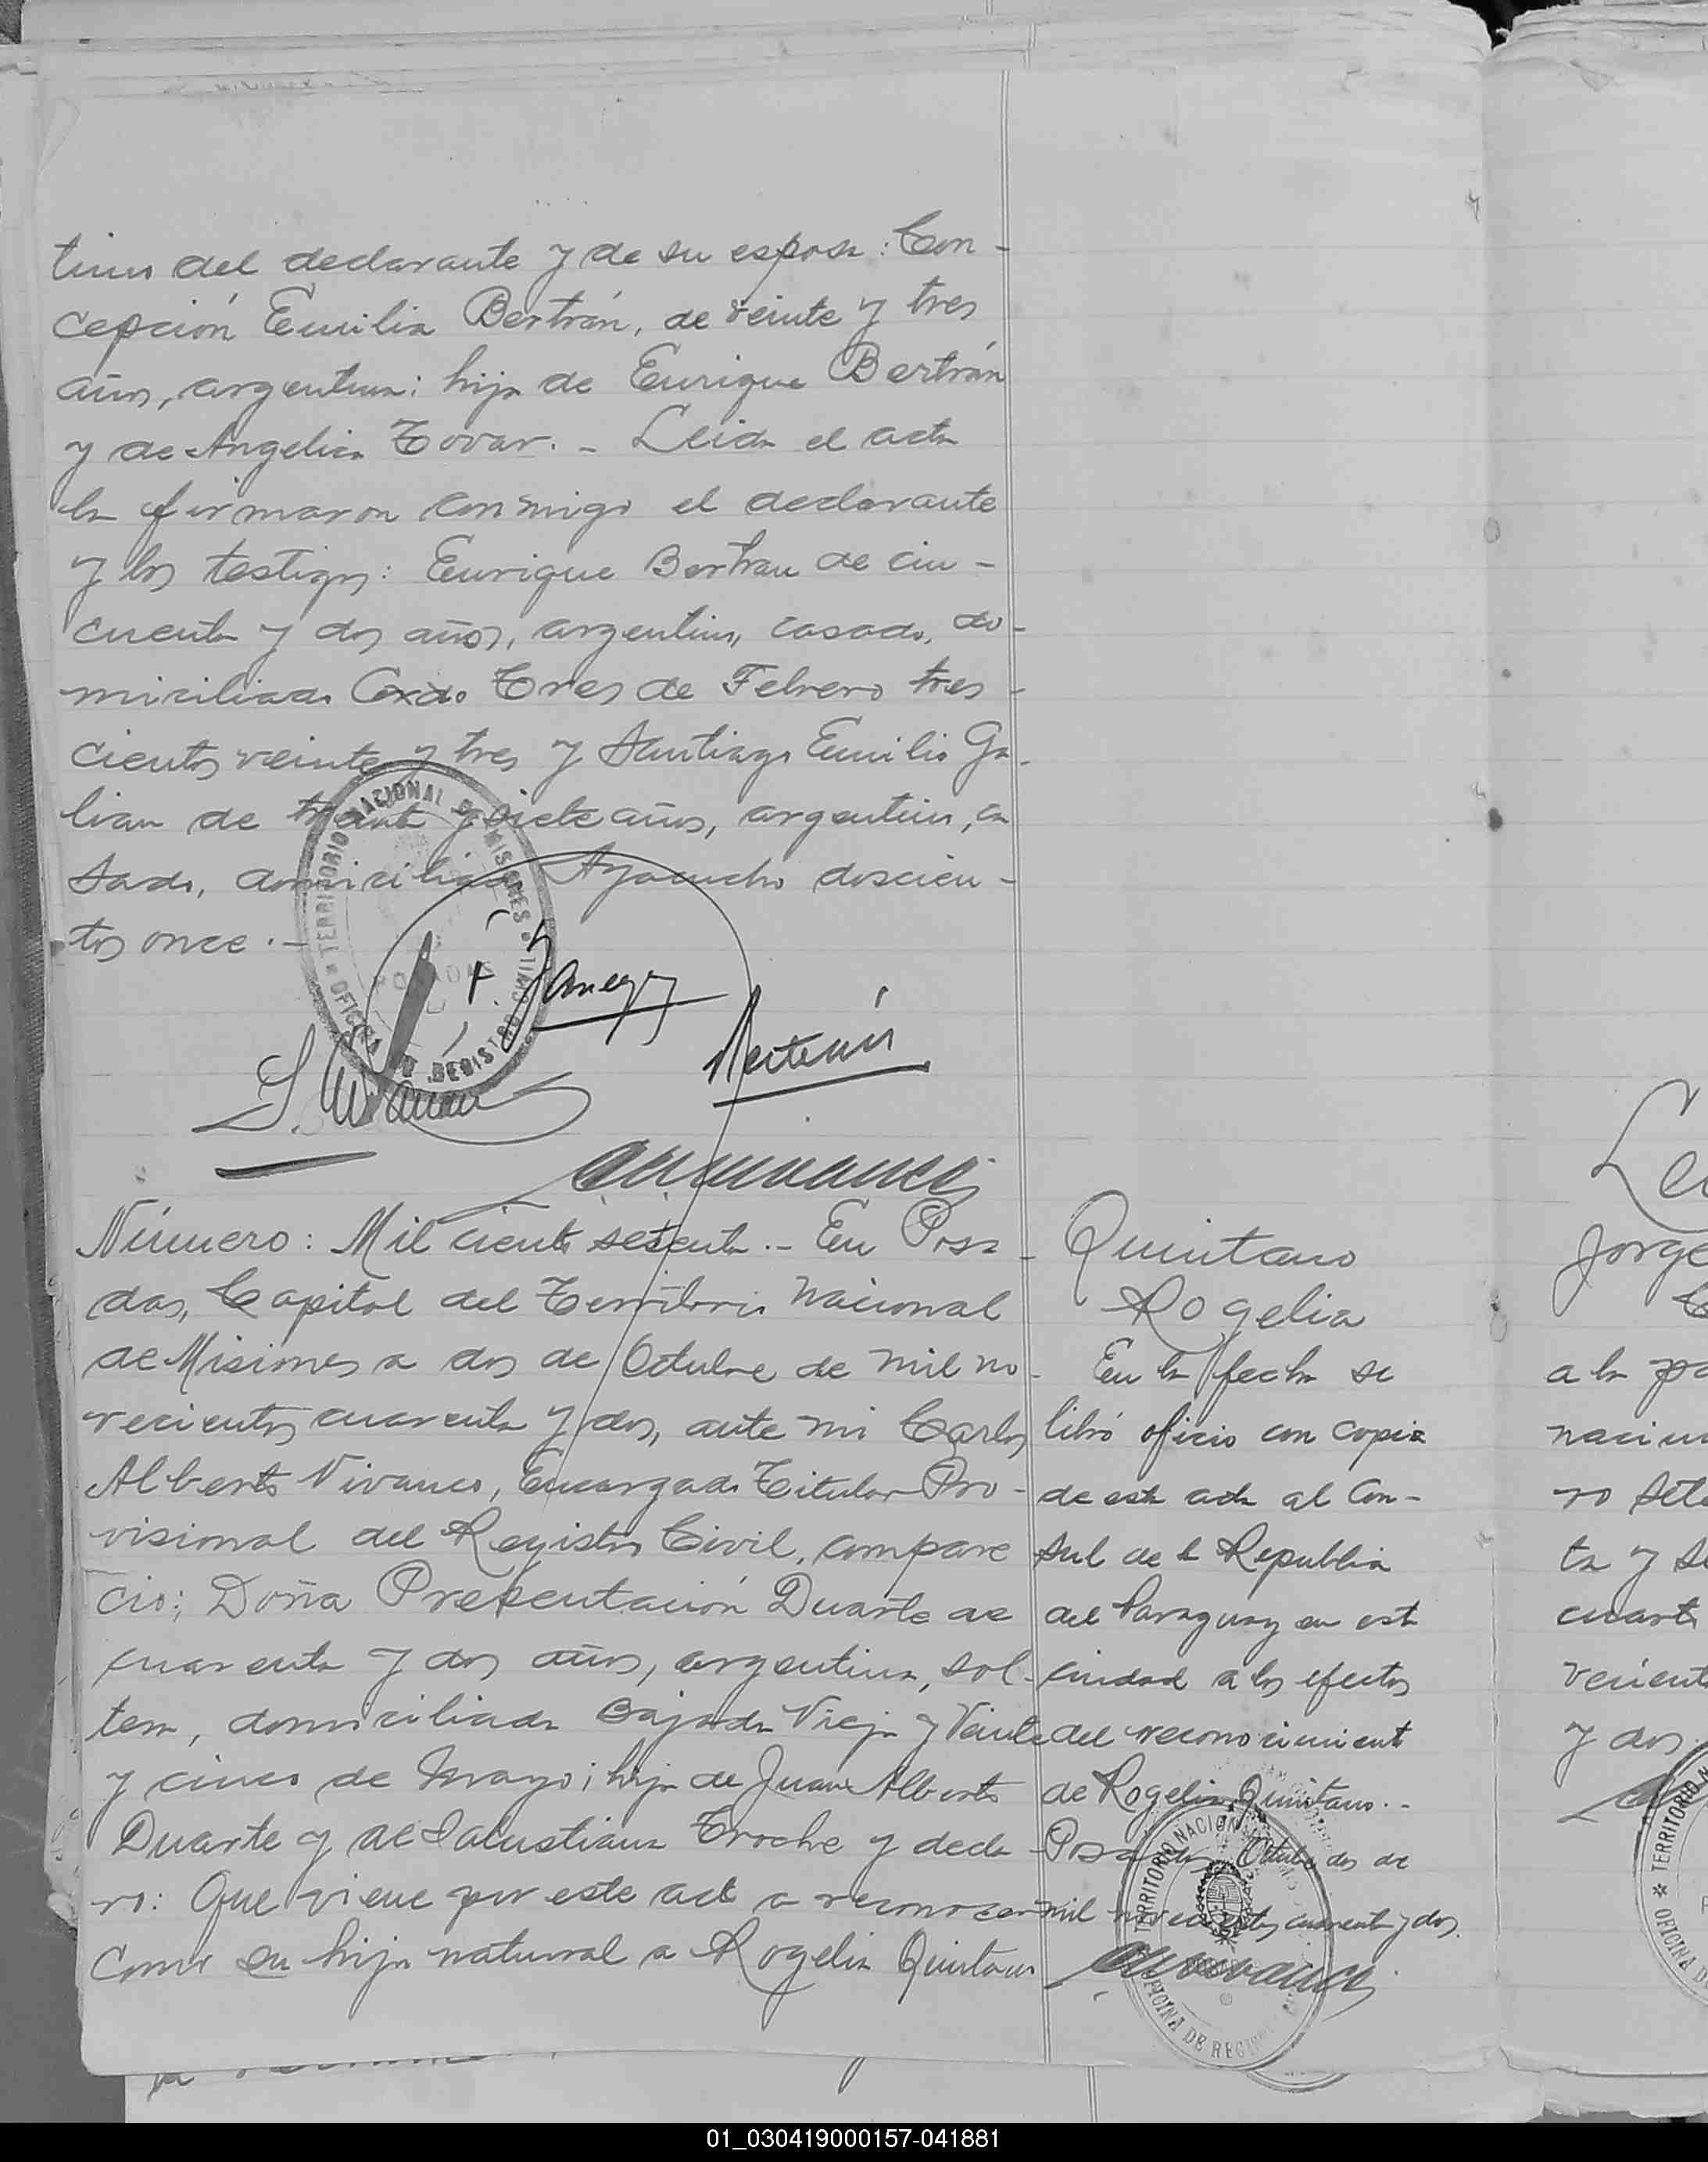 timo del declarante y de su esposa: Con-
cepción Emilia Bertrán, de veinte y tres
años, argentina: hija de Enrique Bertrán
y de Angelica Tovar. - Leida el acta
la firmaron conmigo el declarante
y los testigos: Enrique Bertran de cin-
cuenta y dos años, argentino, casado, do-
miciliado Cordo Tres de Febrero tres-
cientos veinte y tres y Santiago Emilio Ga-
lian de treinta y siete años, argentino, ca
sado, domiciliado Ayacucho doscien-
tos once. -
TERRITORIO NACIONAL DE MISIONES
OFICINA DE REGISTRO CIVIL
POSADAS
Número: Mil ciento setenta. - En Posa-
das, Capital del Territorio Nacional
de Misiones a dos de Octubre de mil no-
vecientos cuarenta y dos, ante mi Carlos
Alberto Vivanco, Encargado Titular Pro-
visional del Registro Civil, compare
cio: Doña Presentación Duarte de
cuarenta y dos años, argentina, sol-
tera, domiciliada Bajada Vieja y Veinte
y cinco de Mayo; hija de Juan Alberto
Duarte y de Salustiana Troche y decla-
ro: Que viene por este acto a reconocer
como su hija natural a Rogelia Quintano
Quintano
Rogelia
En la fecha se
libró oficio con copia
de esta acta al Con-
sul de la Republica
del Paraguay en esta
ciudad a los efectos
del reconocimiento
de Rogelia Quintano. -
Posadas, Octubre dos de
mil novecientos cuarenta y dos.
TERRITORIO NACIONAL
OFICINA DE REGIS
Jorge
a la pa
nacim
ro sete
ta y se
cuarto
vecient
y dos.
TERRITORIO N
OFICINA D
01_030419000157-041881